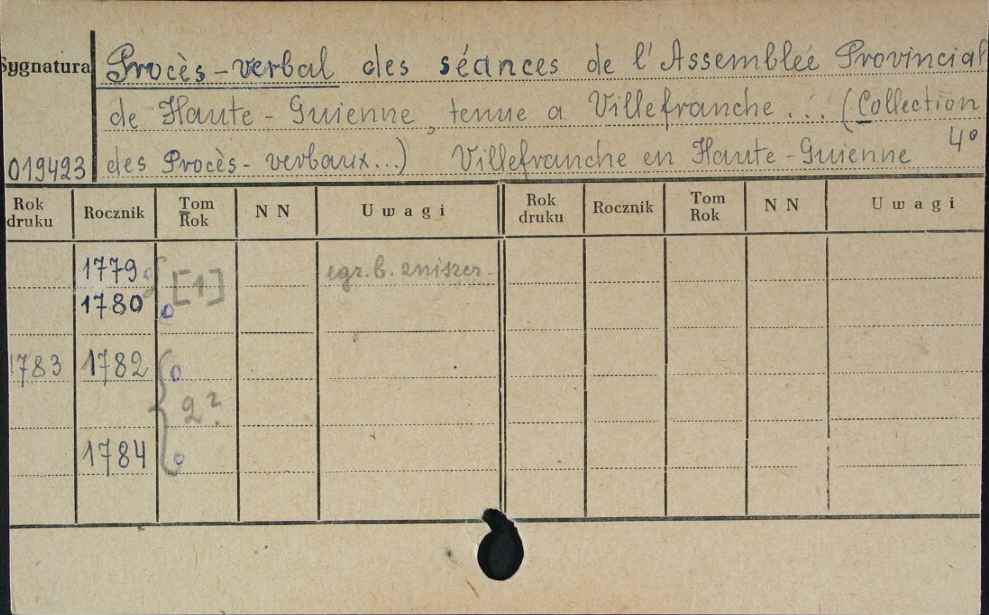 Sygnatura Procès-verbal des séances de l'Assemblée Provincial
de Haute-Guienne, tenue a Villefranche... (Collection
019493 des Procès-verbaux...) Villefranche en Haute-Guienne 4°
Rok druku Rocznik Tom Rok N N Uwagi Rok druku Rocznik Tom Rok N N Uwagi
1779 o [1] egz. b. zniszcz.
1780 o
1783 1782 o
2?
1784 o